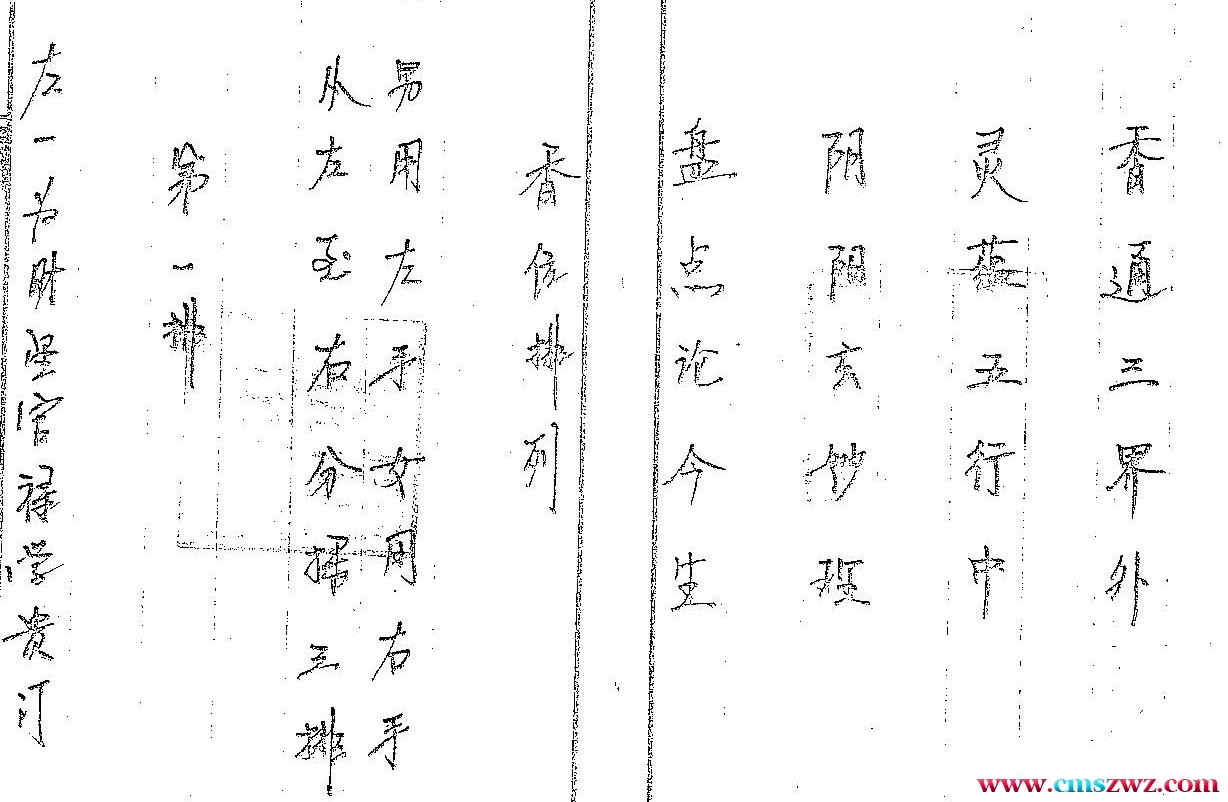 香通三界外
灵蕴五行中
阴阳玄钞
盘点论今生
香位排列
男用左手女用右手
从左至右分插三排
第一排
左一为财星官禄学贵
www.cmszwz.com